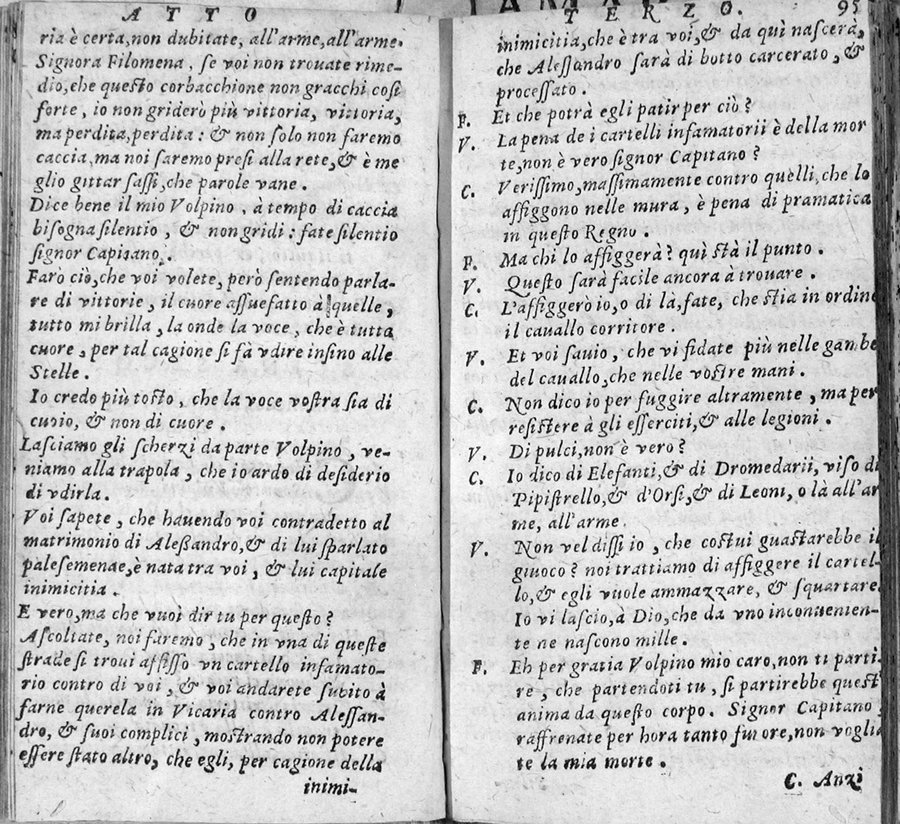 ATTO
ria è certa, non dubitate, all'arme, all'arme.
Signora Filomena, se voi non trouate rime-
dio, che questo corbacchione non gracchi cosi
forte, io non griderò più vittoria, vittoria,
ma perdita, perdita: & non solo non faremo
caccia, ma noi saremo presi alla rete, & è me
glio gittar sassi, che parole vane.
Dice bene il mio Volpino, à tempo di caccia
bisogna silentio, & non gridi: fate silentio
signor Capitano.
Farò ciò, che voi volete, però sentendo parla-
re di vittorie, il cuore assuefatto à quelle,
tutto mi brilla, la onde la voce, che è tutta
cuore, per tal cagione si fà vdire insino alle
Stelle.
Io credo più tosto, che la voce vostra sia di
cuoio, & non di cuore.
Lasciamo gli scherzi da parte Volpino, ve-
niamo alla trapola, che io ardo di desiderio
di vdirla.
Voi sapete, che hauendo voi contradetto al
matrimonio di Aleßandro, & di lui sparlato
palesemenae, è nata tra voi, & lui capitale
inimicitia.
E vero, ma che vuoi dir tu per questo?
Ascoltate, noi faremo, che in vna di queste
strade si troui affisso vn cartello infamato-
rio contro di voi, & voi andarete subito à
farne querela in Vicaria contro Alessan-
dro, & suoi complici, mostrando non potere
essere stato altro, che egli, per cagione della
inimi-
TERZO. 95
inimicitia, che è tra voi, & da quì nascerà,
che Alessandro sarà di botto carcerato, &
processato.
F. Et che potrà egli patir per ciò?
V. La pena de i cartelli infamatorii è della mor
te, non è vero signor Capitano?
C. Verissimo, massimamente contro quelli, che lo
affiggono nelle mura, è pena di pramatica
in questo Regno.
F. Ma chi lo affiggerà? quì stà il punto.
V. Questo sarà facile ancora à trouare.
C. L'affiggerò io, o di là, fate, che stia in ordine
il cauallo corritore.
V. Et voi sauio, che vi fidate più nelle gambe
del cauallo, che nelle vostre mani.
C. Non dico io per fuggire altramente, ma per
resistere à gli esserciti, & alle legioni.
V. Di pulci, non è vero?
C. Io dico di Elefanti, & di Dromedarii, viso di
Pipistrello, & d'Orsi, & di Leoni, o là all'ar
me, all'arme.
V. Non vel dissi io, che costui guastarebbe il
giuoco? noi trattiamo di affiggere il cartel-
lo, & egli vuole ammazzare, & squartare.
Io vi lascio, à Dio, che da vno inconuenien-
te ne nascono mille.
F. Eh per gratia Volpino mio caro, non ti parti-
re, che partendoti tu, si partirebbe quest'
anima da questo corpo. Signor Capitano
raffrenate per hora tanto furore, non voglia
te la mia morte.
C. Anzi